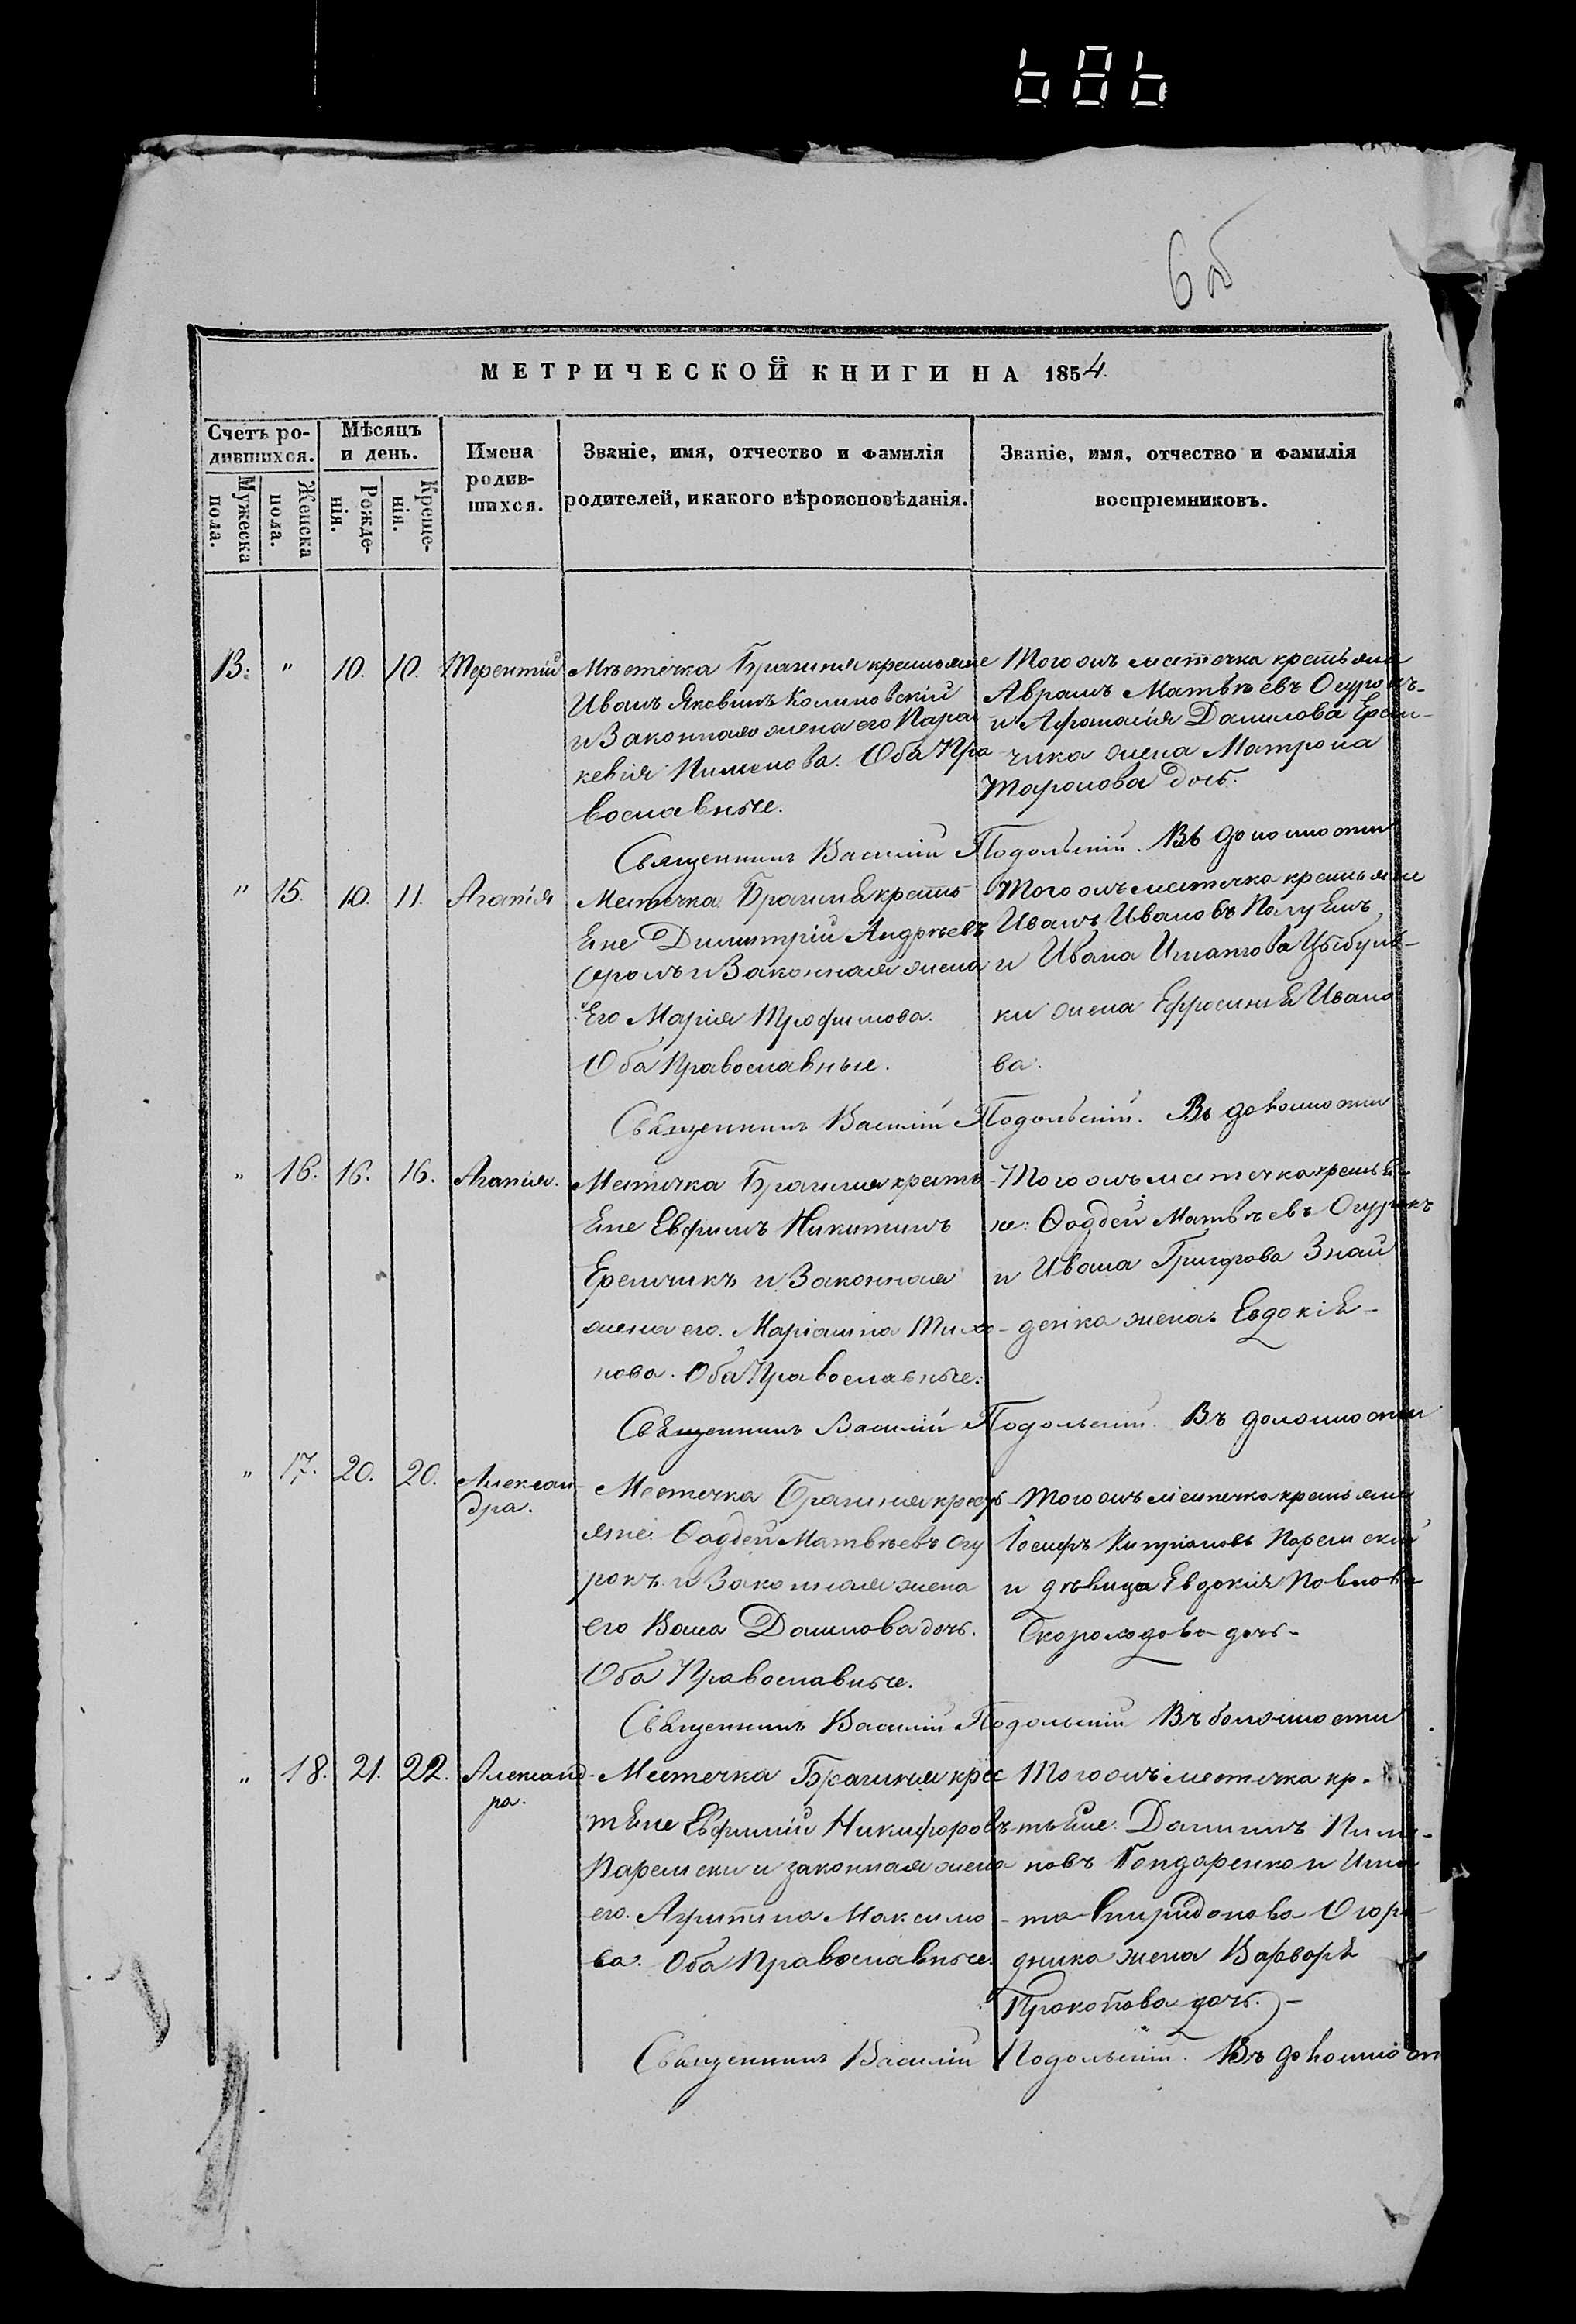 686
6 об
МЕТРИЧЕСКОЙ КНИГИ НА 1854.
Счетъ ро-
дившихся.
Мѣсяцъ
и день.
Имена
родив-
шихся.
Званіе, имя, отчество и фамилія
родителей, и какого вѣроисповѣданія.
Званіе, имя, отчество и фамилія
воспріемниковъ.
Мужеска
пола.
Женска
пола.
Рожде-
нія.
Креще-
нія.
13. " 10. 10. Терентій
Мѣстечка Брагиня крестьяне
Иванъ Яковинъ
и Законная жена его Пара
кевія Пименова. Оба Пра
вославные.
Тогожъ местечка крестьяне
Аврамъ Матвѣевъ Огурокъ
и Данилова Ерем-
чика жена Матрона
дочь.
Священникъ Василій Подольскій. Въ должности
" 15. 10. 11. Агапія
Местечка Брагиня крестъ
яне Димитрій Андрѣевъ
и Законная жена
Его Марія Трофимова.
Оба Православные.
Тогожъ местечка крестьяне
Иванъ Ивановъ
и Ивана Игнатова Цыбуль-
ки жена Ефросиня Ивано
ва.
Священникъ Василій Подольскій. Въ должности
" 16. 16. 16. Агапія.
Местечка Брагиня крестъ
яне Евфимъ Никитинъ
Еремчикъ и Законная
жена его. Маріанна Тихо
нова. Оба Православные.
Тогожъ местечка крестья-
не: Фаддей Матвѣевъ Огурокъ
и Ивана Григорова Знай
денка жена Евдокія-
Священникъ Василій Подольскій. Въ должности
" 17. 20. 20. Алексан-
дра.
Местечка Брагиня кресть
яне: Фаддей Матвѣевъ Огу
рокъ и Законная жена
его Данилова дочь.
Оба Православные.
Тогожъ местечка крестьяне
Іосифъ Кипріановъ
и дѣвица Евдокія Павлова
Скороходова дочь-
Священникъ Василій Подольскій Въ должности
" 18. 21. 22. Александ-
ра.
Местечка Брагиня крес
тяне Евфимій Никифоровъ
и законная жена
его. Агрипина Максимо
ва. Оба Православные.
Тогожъ местечка кр.
тьяне: Даниилъ Пиме-
новъ Бондаренко и Игна
та Спиридонова Огоро-
дника жена Варвара
Прокопова дочь.-
Священникъ Василій Подольскій. Въ должност